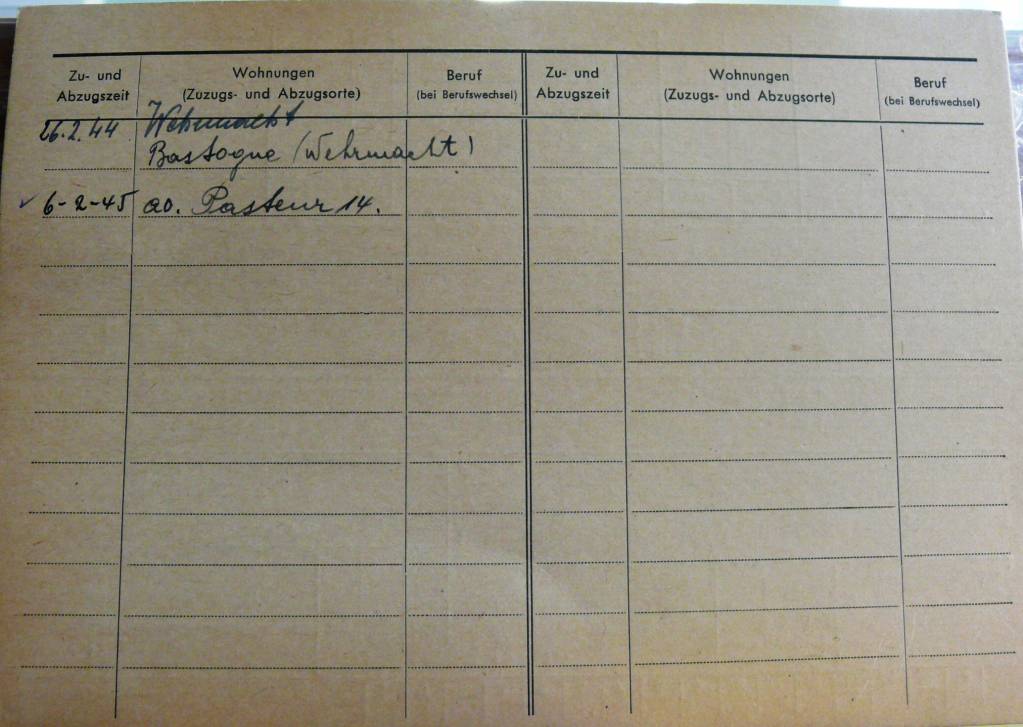 Zu- und Abzugszeit
Wohnungen (Zuzugs- und Abzugsorte)
Beruf (bei Berufswechsel)
Zu- und Abzugszeit
Wohnungen (Zuzugs- und Abzugsorte)
Beruf (bei Berufswechsel)
26.2.44 Wehrmacht
Bastogne (Wehrmacht)
6-2-45 av. Pasteur 14.